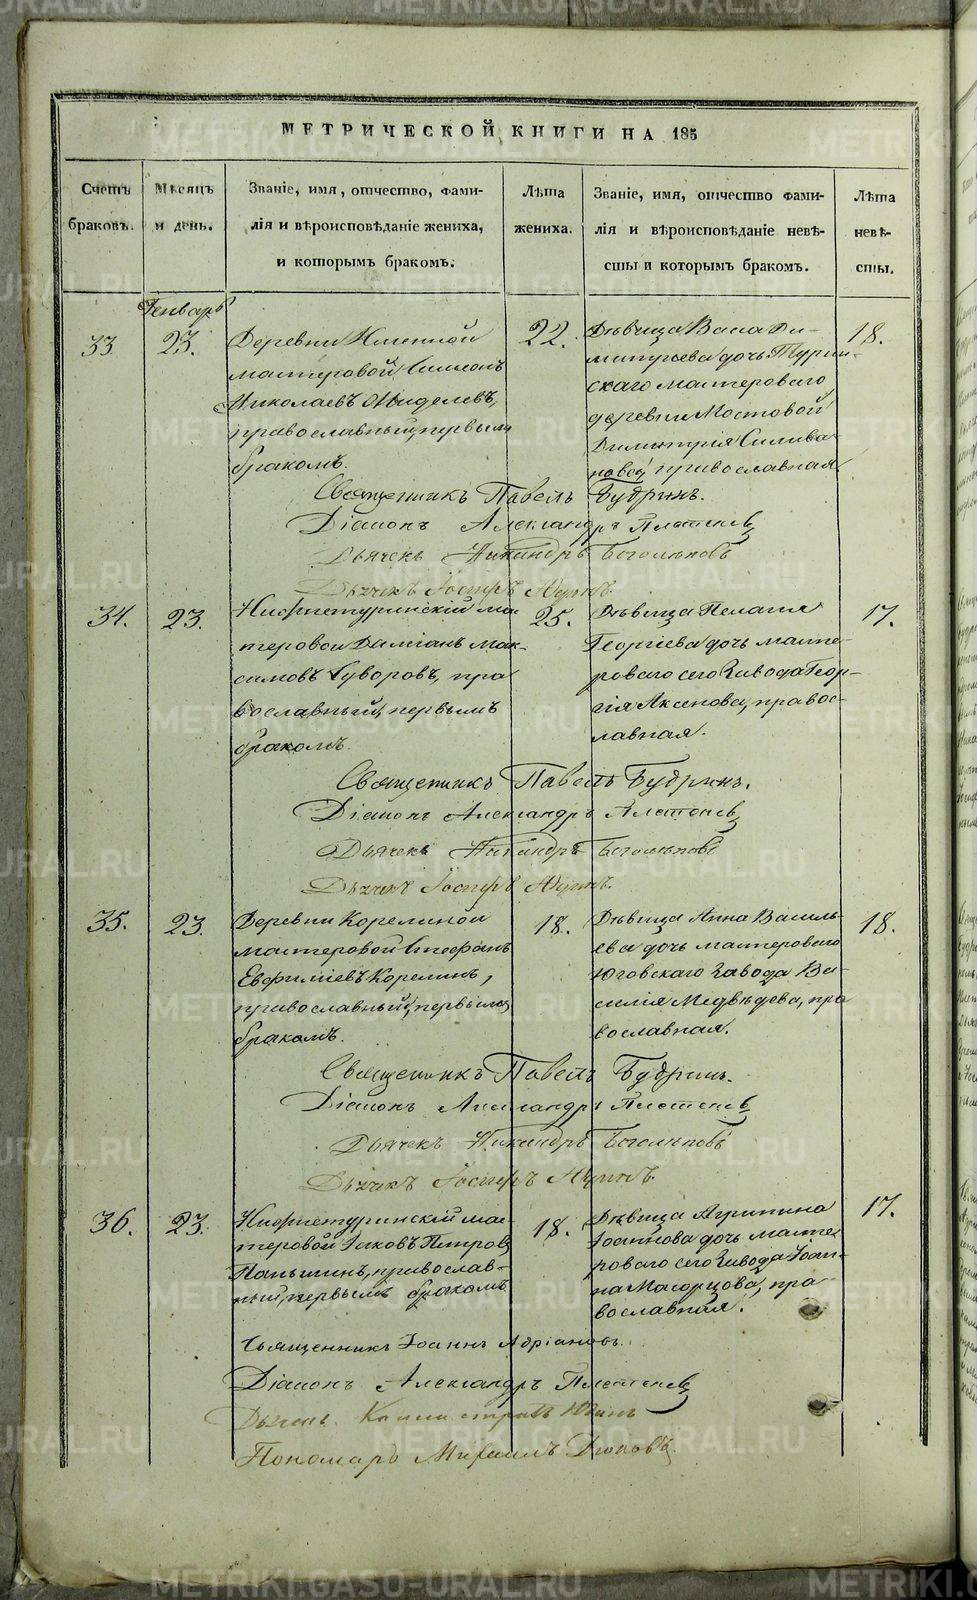 МЕТРИЧЕСКОЙ КНИГИ НА 185
Счетъ браковъ.
Мѣсяцъ и день.
Званіе, имя, отчество, фами-
лія и вѣроисповѣданіе жениха,
и которымъ бракомъ.
Лѣта жениха.
Званіе, имя, отчество фами-
лія и вѣроисповѣданіе невѣ-
сты и которымъ бракомъ.
Лѣта невѣ-
сты.
Генварь
33
23.
Деревни
мастеровой Симеонъ
Николаевъ
православный, первымъ
бракомъ.
22.
Дѣвица Васса Ди-
митріева дочь Турин-
скаго мастероваго
деревни Мостовой
Димитрія Силива-
новой православная.
18.
Священникъ Павелъ Будринъ.
Діаконъ Александръ Плетеневъ
Дьячекъ Никандръ Боголѣповъ
Дьячекъ Іосифъ
34.
23.
Нижнетуринскій ма-
теровои Даміанъ Мак-
симовъ Суворовъ, пра
вославный, первымъ
бракомъ.
25.
Дѣвица Пелагія
Георгіева дочь масте-
роваго сего Завода Геор-
гія Аксенова, правос-
лавная.
17.
Священникъ Павелъ Будринъ.
Діаконъ Александръ Плетеневъ
Дьячекъ Никандръ Боголѣповъ
Дьячекъ Іосифъ
35.
23.
Деревни Корелиной
мастеровой Стефанъ
Евфиміевъ Корелинъ,
православный, первымъ
бракомъ.
18.
Дѣвица Анна Василь-
ева дочь мастероваго
Юговскаго Завода Ва-
силія Медвѣдева, пра
вославная.
18.
Священникъ Павелъ Будринъ.
Діаконъ Александръ Плетеневъ
Дьячекъ Никандръ Боголѣповъ
Дьячекъ Іосифъ
36.
23.
Нижнетуринскій мас-
теровой Іаковъ Петровъ
Паньшинъ, православ-
ный, первымъ бракомъ
18.
Дѣвица Агрипина
Іоаннова дочь масте
роваго сего Завода Іоан-
на пра-
вославная.
17.
Священникъ Іоаннъ Адріановъ.
Діаконъ Александръ Плетеневъ
Дьячекъ
Пономарь Михаилъ
METRIKI.GASO-URAL.RU